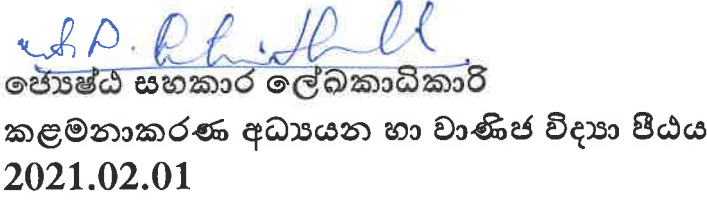 ජ්‍යෙෂ්ඨ සහකාර ලේඛකාධිකාරි
කළමනාකරණ අධ්‍යයන හා වාණිජ විද්‍යා පීඨය
2021.02.01